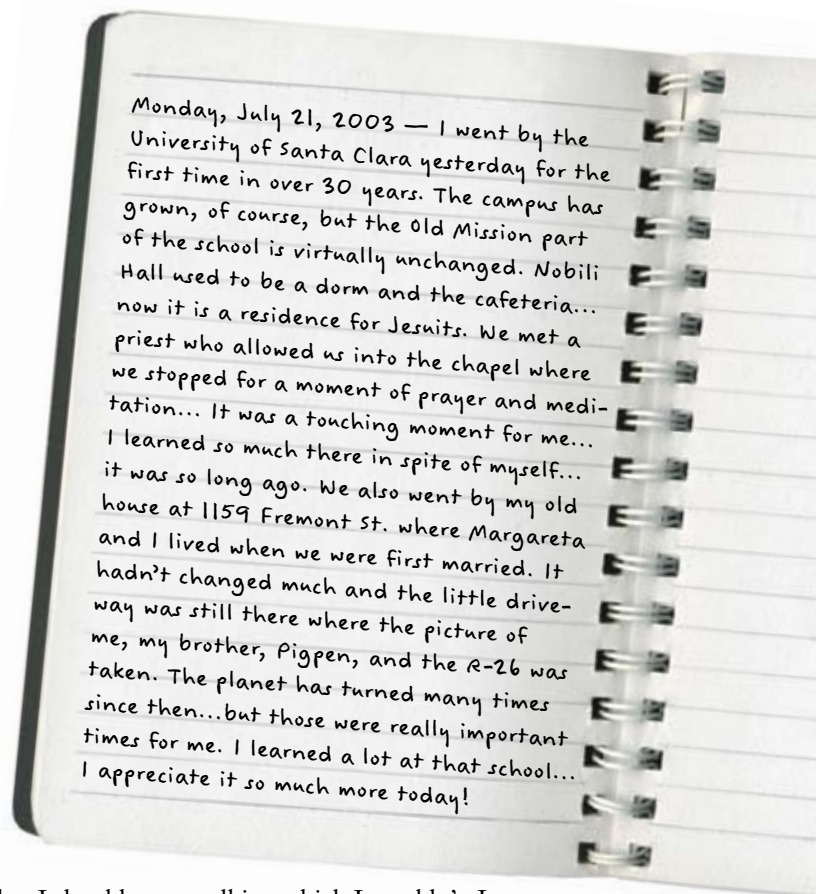 Monday, July 21, 2003 — I went by the
University of Santa Clara yesterday for the
first time in over 30 years. The campus has
grown, of course, but the Old Mission part
of the school is virtually unchanged. Nobili
Hall used to be a dorm and the cafeteria...
now it is a residence for Jesuits. We met a
priest who allowed us into the chapel where
we stopped for a moment of prayer and medi-
tation... It was a touching moment for me...
I learned so much there in spite of myself...
it was so long ago. We also went by my old
house at 1159 Fremont St. where Margareta
and I lived when we were first married. It
hadn't changed much and the little drive-
way was still there where the picture of
me, my brother, Pigpen, and the R-26 was
taken. The planet has turned many times
since then...but those were really important
times for me. I learned a lot at that school...
I appreciate it so much more today!